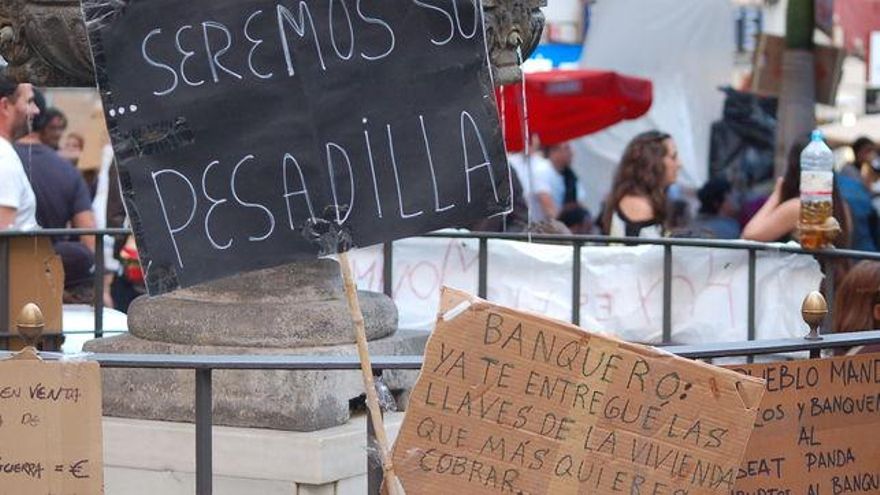 ...SEREMOS SU
PESADILLA
BANQUERO:
YA TE ENTREGUÉ LAS
LLAVES DE LA VIVIENDA
QUE MÁS QUIERES
COBRAR
EN VENTA
DE
GUERRA = €
PUEBLO MAND
COS Y BANQUE
AL
SEAT PANDA
AL BANQU